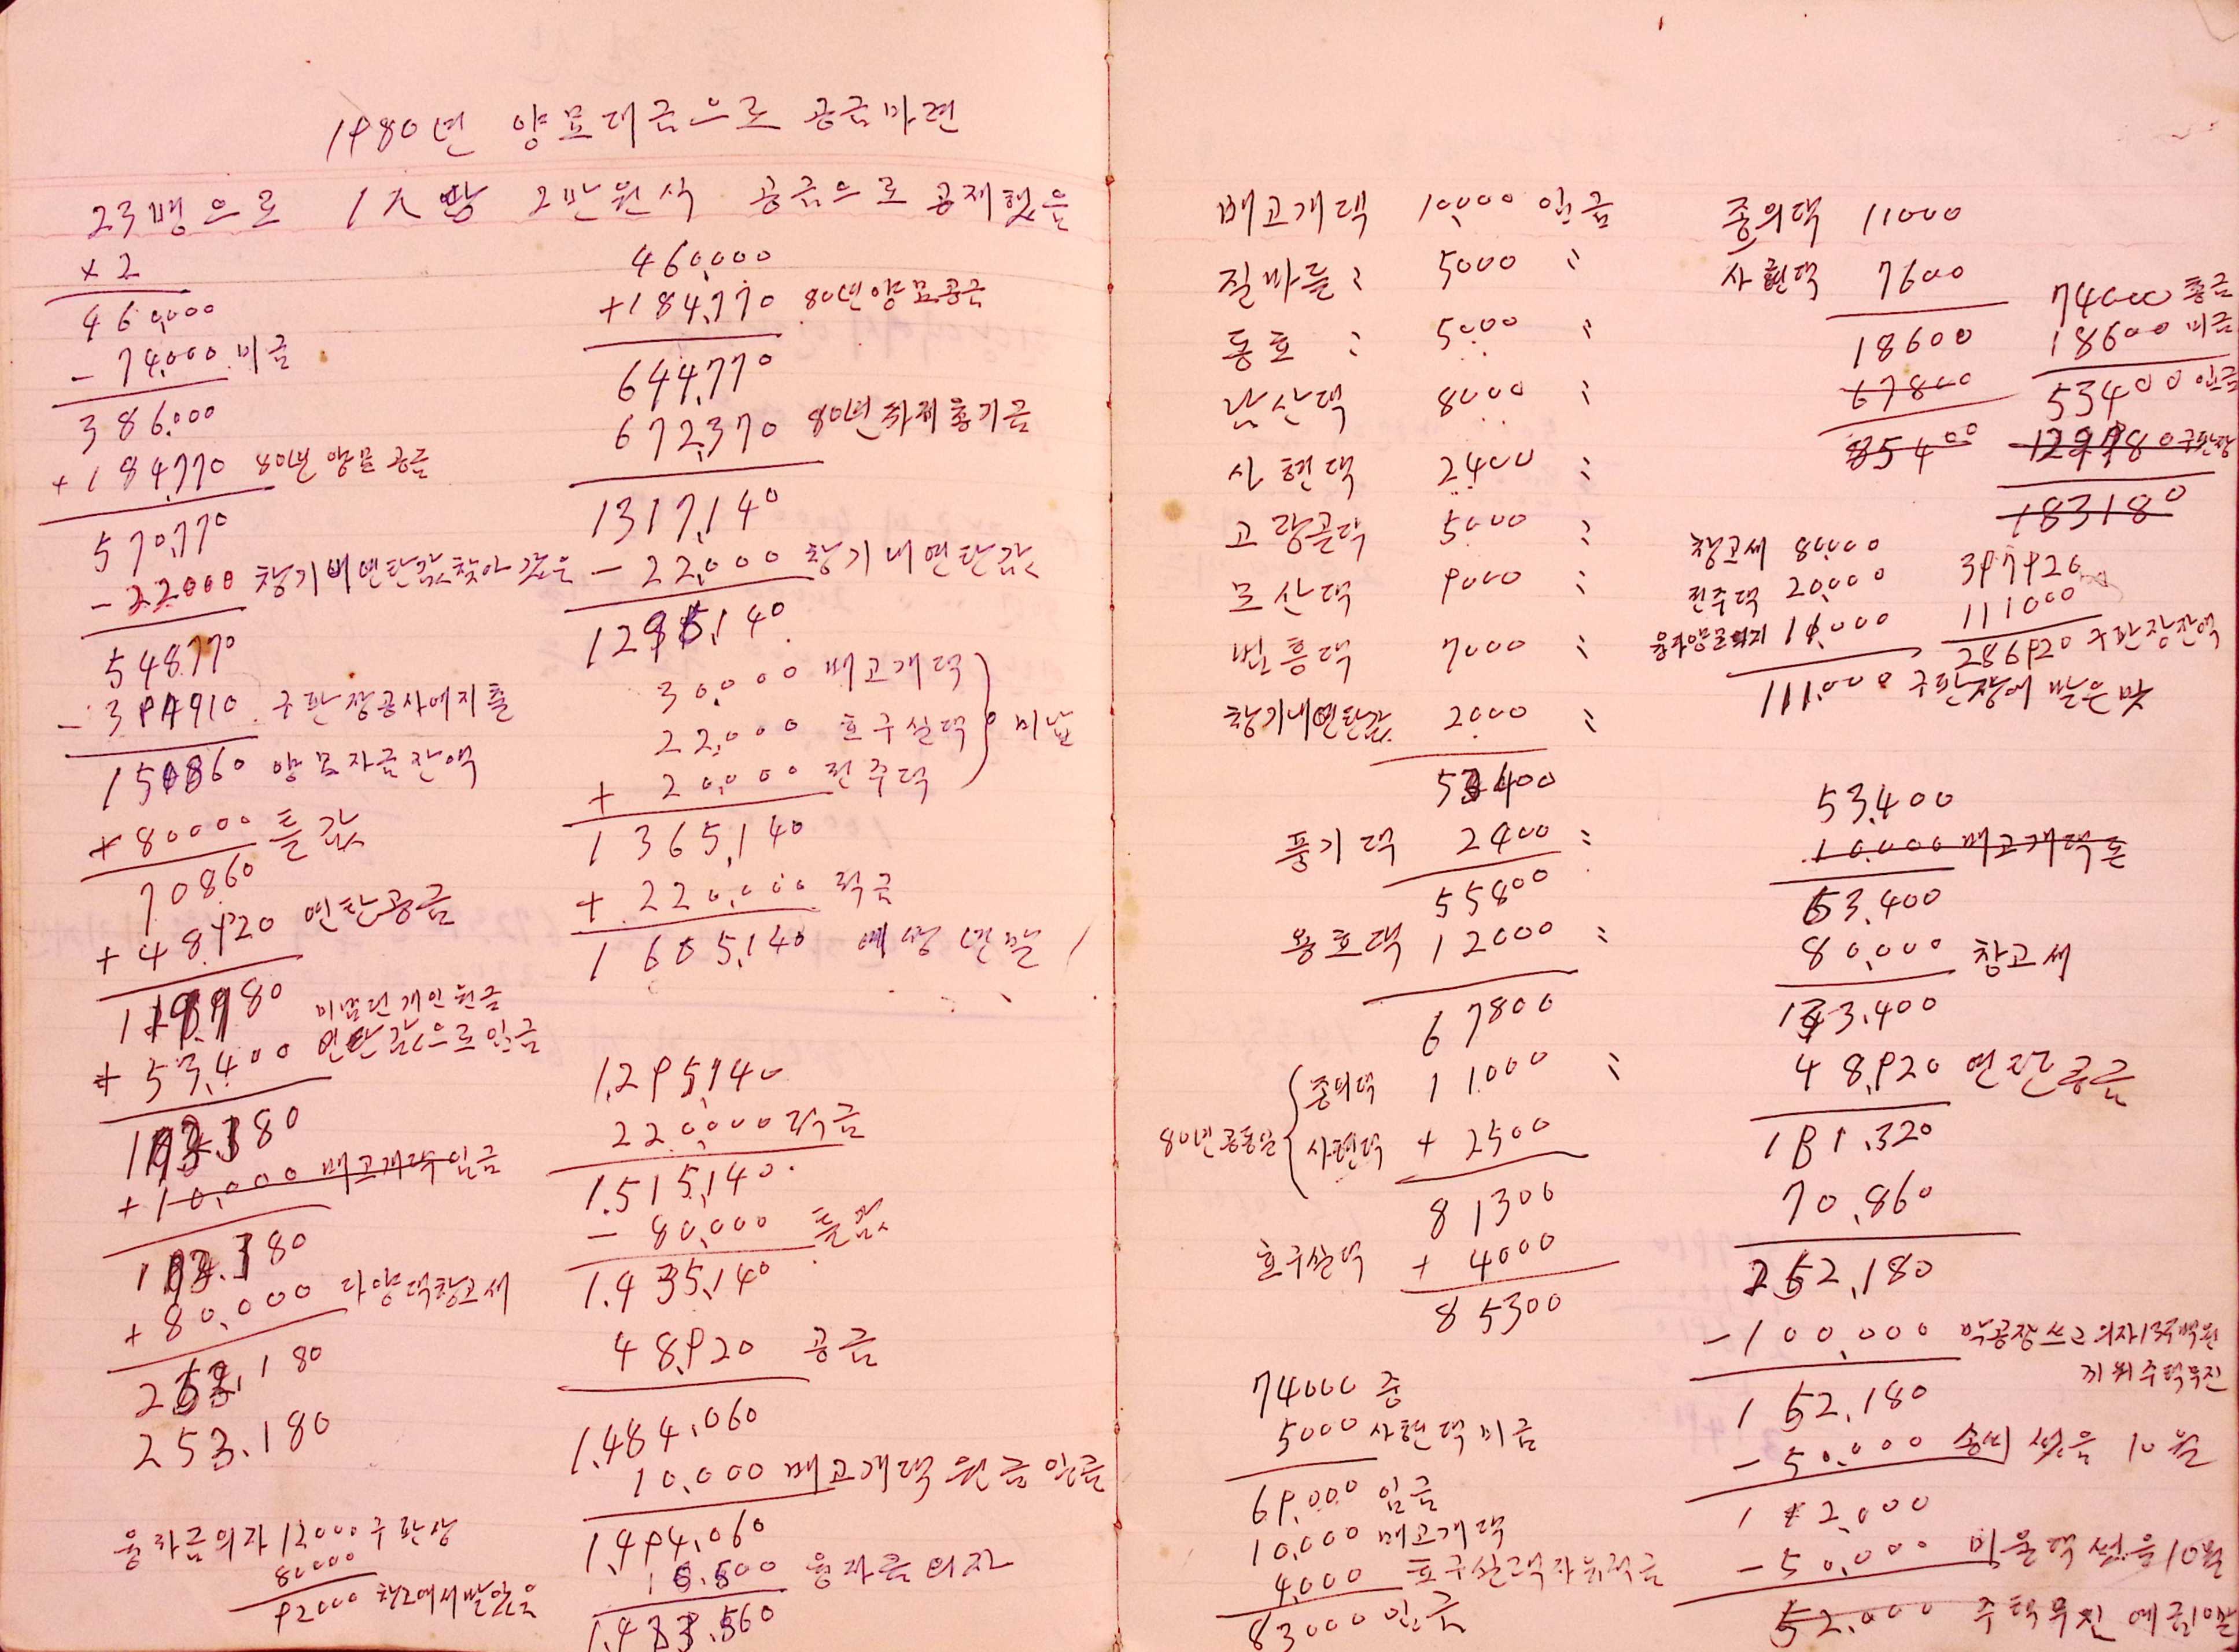 1980년 양묘대금으로 공금마련
23명으로 1人당 2만원식 공금으로 공제했음
× 2
460,000
- 74,000 미금
386,000
+ 184,770 80년 양묘공금
570,770
- 22000 창기내연탄값 찾아갔음
548,770
- 394910 구판장공사에지출
150860 양묘자금잔액
+ 80000 틀값
70860
+ 48,920 연탄공금
미납된개인원금
+ 53,400 연탄값으로 입금
+ 10,000 매고개댁 입금
+ 80,000 다양댁창고세
253,180
융자금의자 12000 구판상
80000
92000 창고에서받았음
460,000
+ 184,770 80년양묘공금
644,770
672,370 80년
1317,140
- 22,000 창기내연탄값
1295,140
30,000 매고개댁
22,000 효구실댁 미납
+ 20,000 전주댁
1365,140
+ 220,000 적금
1605,140 예상 년말
1,295,140
220,000 적금
1,515,140
- 80,000 틀값
1,435,140
48,920 공금
1,484,060
10,000 매고개댁 원금입금
1,494,060
융자금의자
매고개댁 10,000 입금
질마들 : 5000 〃
통호 : 5000 〃
남산댁 8000 〃
사현댁 2400 〃
고랑골댁 5000 〃
모산댁 9000 〃
번흥댁 7000 〃
창기내연탄값 2000 〃
53400
풍기댁 2400 〃
55800
용호댁 12000 〃
67800
80년공동일 종의댁 11000 〃
사현댁 + 2500
81300
효구실댁 + 4000
85300
74000 중
5000 사현댁미금
69,000 입금
10,000 매고개댁
4,000
83000 입금
종의댁 11000
사현댁 7600
18600
67800
85400
74000 총금
18600 미금
53400 입금
129980 구판장
183180
창고세 80000
전주댁 20,000
111,000 구판장에 받은 것
397920
111000
286920 구판장잔액
53,400
10,000 매고개댁돈
63,400
80,000 창고세
143,400
48,920 연탄공금
181,320
70,860
252,180
- 100,000
152,180
- 50,000 송비 썼음 10월
- 50,000 미울댁 썼음 10월
52,000